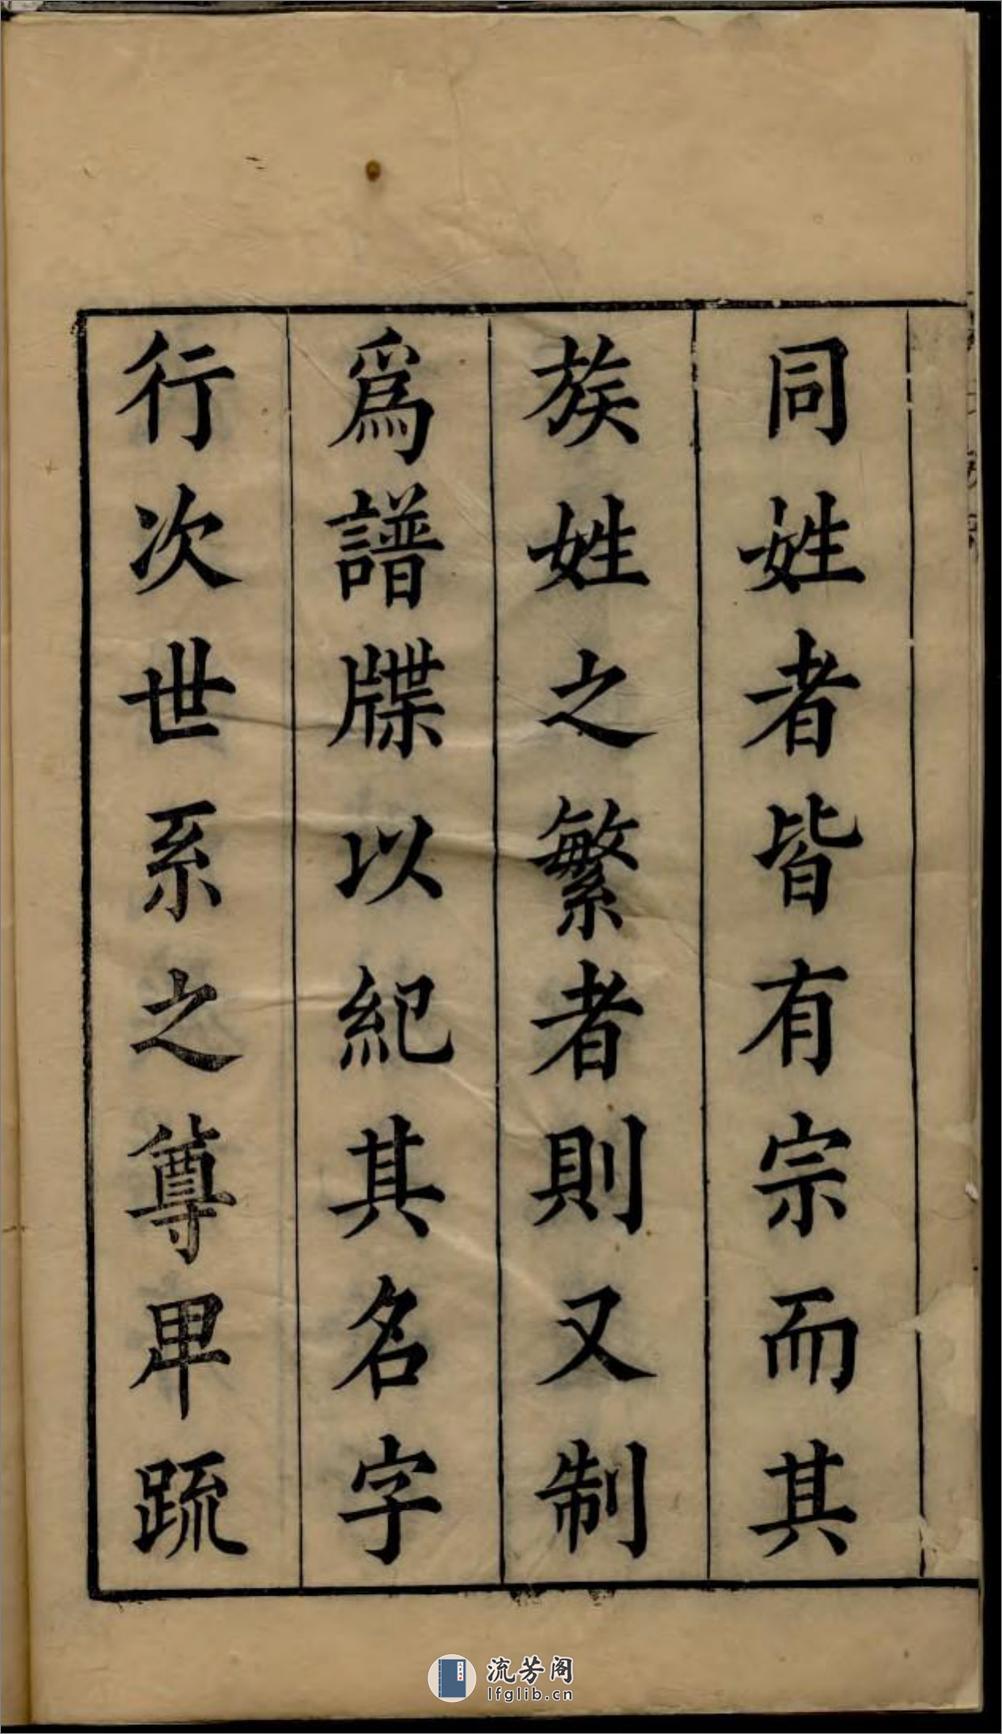 同姓者皆有宗而其
族姓之繁者則又制
爲譜牒以紀其名字
行次世系之尊卑疏
流芳阁
lfglib.cn